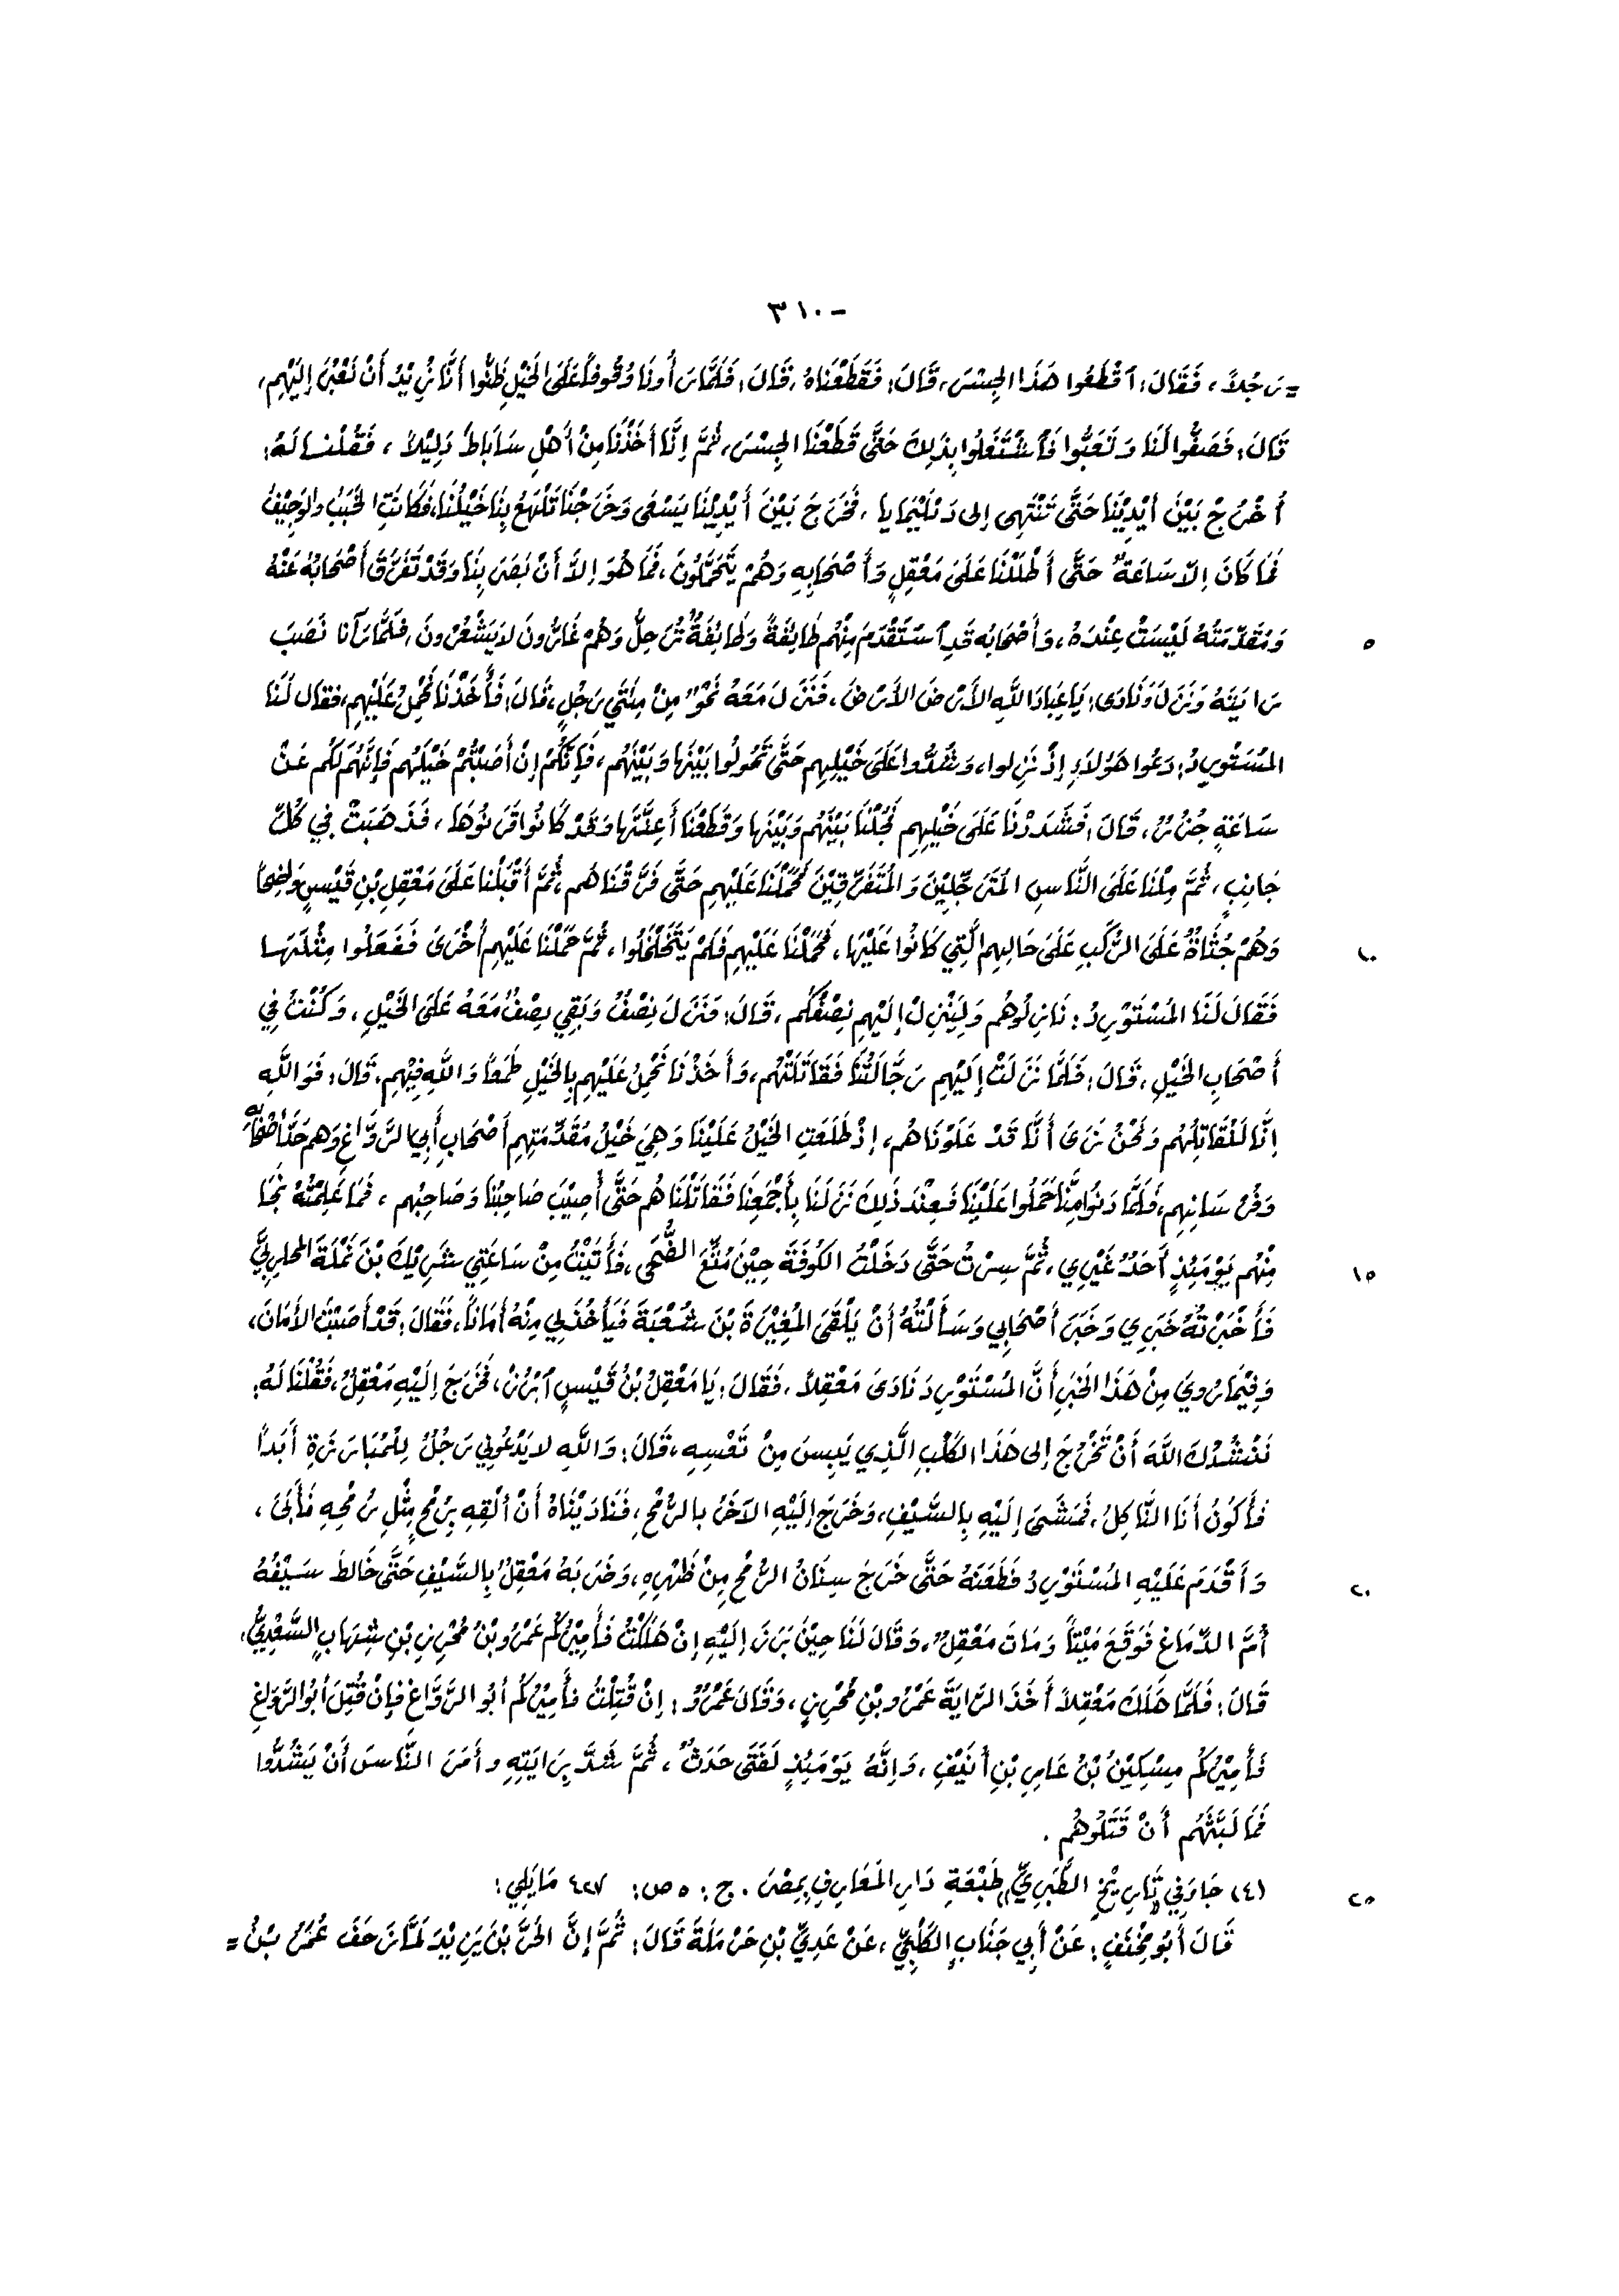 ٣١٠-
= رَجُلاً، فَقَالَ: ٱقْطَعُوا هَذَا الجِسْرَ، قَالَ: فَقَطَعْنَاهُ، قَالَ: فَلَمَّا رَأَونَا وُقُوفاً عَلَى الخَيْلِ ظَنُّوا أَنَّا نُرِيْدُ أَنْ نَعْبُرَ إِلَيْهِم،
قَالَ: فَصَفُّوا لَنَا وَتَعَبُّوا فَٱشْتَغَلُوا بِذَلِكَ حَتَّى قَطَعْنَا الجِسْرَ، ثُمَّ إِنَّا أَخَذْنَا مِنْ أَهْلِ سَابَاطَ دَلِيْلاً، فَقُلْنَا لَهُ:
أُخْرُجْ بَيْنَ أَيْدِيْنَا حَتَّى تَنْتَهِي إلى دَيْلَيْمَايا، فَخَرَجَ بَيْنَ أَيْدِيْنَا يَسْعَى وَخَرَجْنَا تَلْمَعُ بِنَا خَيْلُنَا، فَكَانَتِ الخَبَبُ والوَجِيْفُ
فَمَا كَانَ إِلاّ سَاعَةٌ حَتَّى أَطْلَلْنَا عَلَى مَعْقِلٍ وَأَصْحَابِهِ وَهُمْ يَتَحَمَّلُونَ، فَمَا هُوَ إِلاَّ أَنْ بَصَرَ بِنَا وَقَدْ تَفَرَّقَ أَصْحَابُهُ عَنْهُ
وَمُقَدِّمَتُهُ لَيْسَتْ عِنْدَهُ، وَأَصْحَابُه قَدِ ٱسْتَقْدَمَ مِنْهُم طَائِفَةٌ وَطَائِفَةٌ تُرَحِلُ وَهُمْ غَارُّونَ لا يَشْعُرُونَ، فَلَمَّا رَآنا نَصَبَ
رَايَتَهُ وَنَزَلَ وَنَادَى: يَا عِبَادَ اللَّهِ الأَرْضَ الأَرْضَ، فَنَزَلَ مَعَهُ نَحْوٌ مِنْ مِئَتَي رَجُلٍ، قَالَ: فَأَخَذْنَا نَحْمِلُ عَلَيْهِم، فقال لَنَا
المُسْتَوْرِدُ: دَعُوا هَؤلاَءِ إِذْ نَزَلوا، وَشُدُّوا عَلَى خَيْلِهِم حَتَّى تَحُولُوا بَيْنَهَا وَبَيْنَهُم، فَإِنَّكُمْ إِنْ أَصَبْتُمْ خَيْلَهُم فَإِنَّهُم لَكُم عَنْ
سَاعَةٍ جُزُرٌ، قَالَ: فَشَدَدْنَا عَلَى خَيْلِهِم فَحُلْنَا بَيْنَهُم وَبَيْنَهَا وَقَطَعْنَا أَعِنَّتَهَا وَقَدْ كَانُوا قَرَنُوهَا، فَذَهَبَتْ فِي كُلِّ
جَانِبٍ، ثُمَّ مِلْنَا عَلَى النَّاسِ المُتَرَجِّلِيْنَ وَالمُتَفَرِّقِيْنَ فَحَمَلْنَا عَلَيْهِم حَتَّى فَرَّقْنَاهُم، ثُمَّ أَقْبَلْنَا عَلَى مَعْقِلِ بْنِ قَيْسٍ
وَهُمْ جُثَاةٌ عَلَى الرُّكَبِ عَلَى حَالِهِم الَّتِي كَانُوا عَلَيْهَا، فَحَمَلْنَا عَلَيْهِم فَلَمْ يَتَحَلْحَلُوا، ثُمَّ حَمَلْنَا عَلَيْهِم أُخْرَى فَفَعَلُوا مِثْلَهَا
فَقَالَ لَنَا المُسْتَوْرِدُ: نَازِلُوهُم وَلِيَنْزِلْ إِلَيْهِم نِصْفُكُم، قَالَ: فَنَزَلَ نِصْفُ وَبَقِي نِصْفٌ مَعَهُ عَلَى الخَيْلِ، وَكُنْتُ فِي
أَصْحَابِ الخَيْلِ، قَالَ: فَلَمَّا نَزَلَتْ إِلَيْهِم رَجَّالَتُنَا فَقَاتَلَتْهُم، وَأَخَذْنَا نَحْمِلُ عَلَيْهِم بِالخَيْلِ طَمَعاً وَاللَّهِ فِيْهِم، قَالَ: فَوَاللَّهِ
إِنَّا لَنُقَاتِلُهُم وَنَحْنُ نَرَى أَنَّا قَدْ عَلَوْنَاهُم، إِذْ طَلَعَتِ الخَيْلُ عَلَيْنَا وَهِيَ خَيْلُ مُقَدِّمَتِهِم أَصْحَابِ أَبِي الرَّوَّاغِ وَهُم حَدُّ أَصْحَابِهِ
وَفُرْسَانِهِم، فَلَمَّا دَنُوا مِنَّا حَمَلُوا عَلَيْنَا فَعِنْدَ ذَلِكَ نَزَلَنَا بِأَجْمَعِنَا فَقَاتَلْنَاهُم حَتَّى أُصِيْبَ صَاحِبُنَا وَصَاحِبُهِم، فَمَا عَلِمْتُهُ نَجَا
مِنْهُم يَوْمَئِذٍ أَحَدٌ غَيْرِي، ثُمَّ سِرْتُ حَتَّى دَخَلْتُ الكُوفَةَ حِيْنَ مُتِّعَ الضُّحَى، فَأَتَيْتُ مِنْ سَاعَتِي شَرِيْكَ بْنَ نَمْلَةَ المحارِبِيَّ
فَأَخْبَرْتُهُ خَبَرِي وَخَبَرَ أَصْحَابِي وَسَأَلْتُهُ أَنْ يَلْقَى المُغِيْرَةَ بْنَ شُعْبَةَ فَيَأْخُذَ لِي مِنْهُ أَمَاناً، فَقَالَ: قَدْ أَصَبْتَ الأَمَانَ،
وَفِيْمَا رُوِيَ مِنْ هَذَا الخَبَرِ أَنَّ المُسْتَوْرِدَ نَادَى مَعْقِلاً، فَقَالَ: يَا مَعْقِلُ بْنُ قَيْسٍ ٱبْرُزْ، فَخَرَجَ إِلَيْهِ مَعْقِلٌ، فَقُلْنَا لَهُ:
نَنْشُدُكَ اللَّهَ أَنْ تَخْرُجَ إلى هَذَا الكَلْبِ الَّذِي يَئِسَ مِنْ نَفْسِهِ، قَالَ: وَاللَّهِ لا يَدْعُونِي رَجُلٌ لِلْمُبَارَزَةِ أَبَداً
فَأَكُونُ أَنَا النَّاكِلُ، فَمَشَى إِلَيْهِ بِالسَّيْفِ، وَخَرَجَ إِلَيْهِ الآخَرُ بالرُّمْحِ، فَنَادَيْنَاهُ أَنْ الْقِهِ بِرُمْحٍ مِثْلِ رُمْحِهِ فَأَبَى،
وَأَقْدَمَ عَلَيْهِ المُسْتَوْرِدُ فَطَعَنَهُ حَتَّى خَرَجَ سِنَانُ الرُّمْحِ مِنْ ظَهْرِهِ، وَضَرَبَهُ مَعْقِلٌ بِالسَّيْفِ حَتَّى خَالطَ سَيْفُهُ
أُمَّ الدِّمَاغِ فَوَقَعَ مَيْتاً وَمَاتَ مَعْقِلٌ، وَقَالَ لَنَا حِيْنَ بَرَزَ إِلَيْهِ إِنْ هَلَكْتُ فَأَمِيْرُكُم عَمْرُو بْنُ مُحْرِزِ بْنِ شِهَابٍ السَّعْدِيُّ،
قَالَ: فَلَمَّا هَلَكَ مَعْقِلاً أَخَذَ الرَّايَةَ عَمْرُو بْنِ مُحْرِزٍ، وَقَالَ عَمْرٌو: إِنْ قُتِلْتُ فأَمِيْرُكُم أبُو الرَّوَّاغِ فَإِنْ قُتِلَ أبُو الرَّوَّاغِ
فَأَمِيْرُكُم مِسْكِيْنُ بْنُ عَامِرِ بْنِ أُنَيْفٍ، وَإِنَّهُ يَوْمَئِذٍ لَفَتَى حَدَثٌ، ثُمَّ شَدَّ بِرَايَتِهِ وأَمَرَ النَّاسَ أَنْ يَشُدُّوا
فَمَا لَبَّثَهُم أَنْ قَتَلُوهُم.
(٤) جَاءَ فِي تَارِيْخِ الطَّبَرِيِّ، طَبْعَةِ دَارِ المَعَارِفِ بِمِصْرَ. ج: ٥ ص: ٤٢٧ مَايَلِي:
قَالَ أَبُو مِخْنَفٍ: عَنْ أَبِي جَنَابِ الكَلْبِيِّ، عَنْ عَدِيِّ بْنِ حَرْمَلَةَ قَالَ: ثُمَّ إِنَّ الحُرَّ بْنَ يَزِيْدَ لَمَّا زَحَفَ عُمَرُ بْنُ =
٥
١٠
١٥
٢٠
٢٥